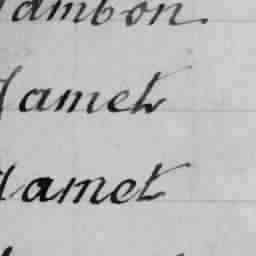 Jambon.
Jamet
Jamet